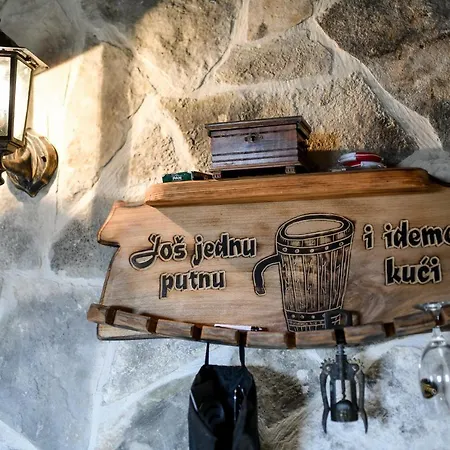 Još jednu
putnu
i idemo
kući